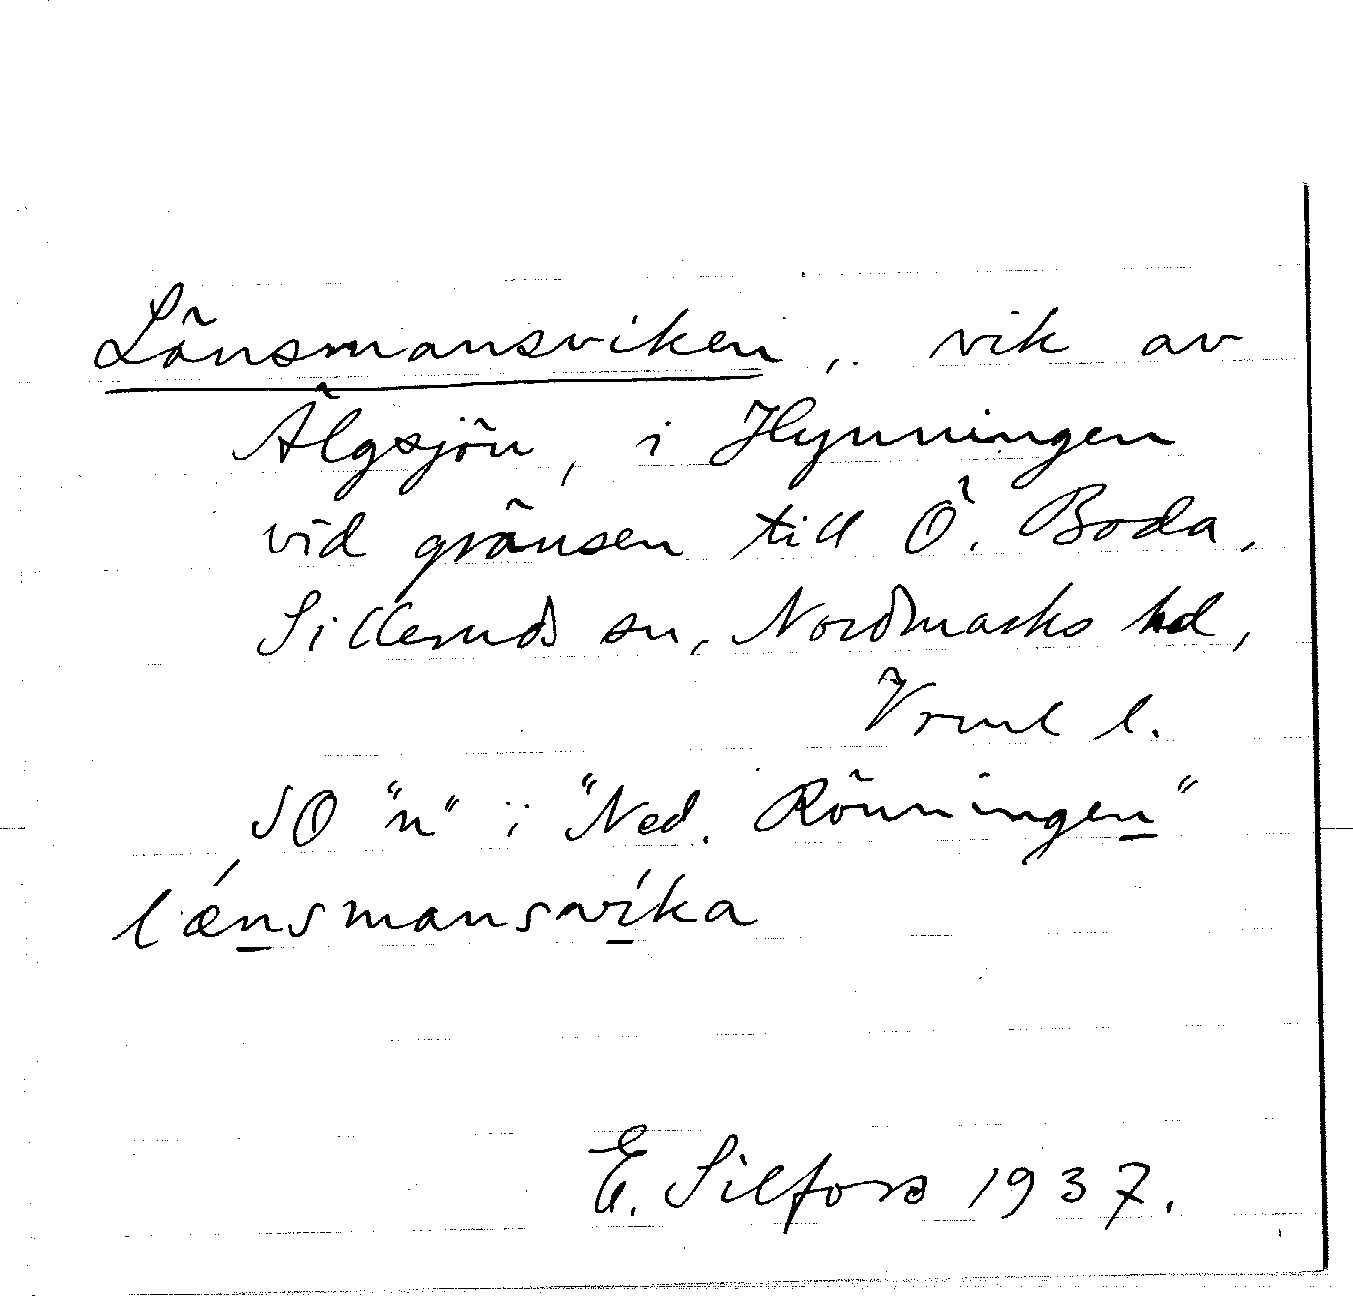 Länsmansviken, vik av
Älgsjön, i Hynningen
vid gränsen till Ö. Boda,
Silleruds sn, Nordmarks hd,
Vrml l.
SO "n" i "Ned. Rönningen"
lænsmansvika
E. Silfors 1937.